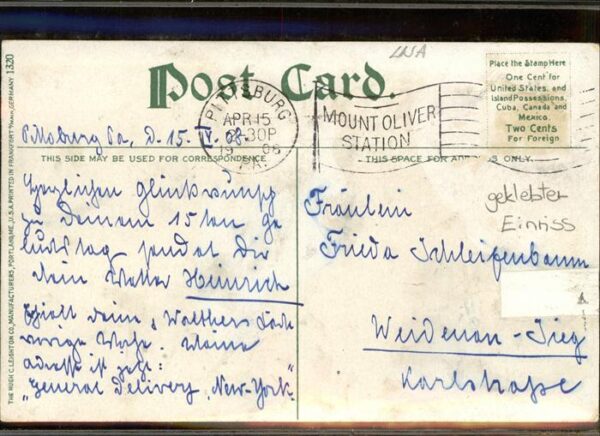 USA
Post Card.
Place the Stamp Here
One Cent for
United States and
Island Possessions,
Cuba, Canada and
Mexico.
Two Cents
For Foreign
PITTSBURG
APR 15
30P
1908
PA.
MOUNT OLIVER
STATION
Pittsburg Pa, d. 15. IV. 08.
THIS SIDE MAY BE USED FOR CORRESPONDENCE
THIS SPACE FOR ADDRESS ONLY.
Herzlichen Glückwunsch
zu Deinem 15 ten Ge
burtstag sendet Dir
Dein Vetter Heinrich
Erhielt Deine & Walthers Karte
vorige Woche. Meine
Adresse ist jetzt:
"General Delivery, New-York".
Fräulein
Frieda Schleifenbaum
Weidenau-Sieg
Karlstraße
geklebter
Einriss
THE HUGH C. LEIGHTON CO., MANUFACTURERS, PORTLAND, ME., U.S.A. PRINTED IN FRANKFORT GERMANY 1320